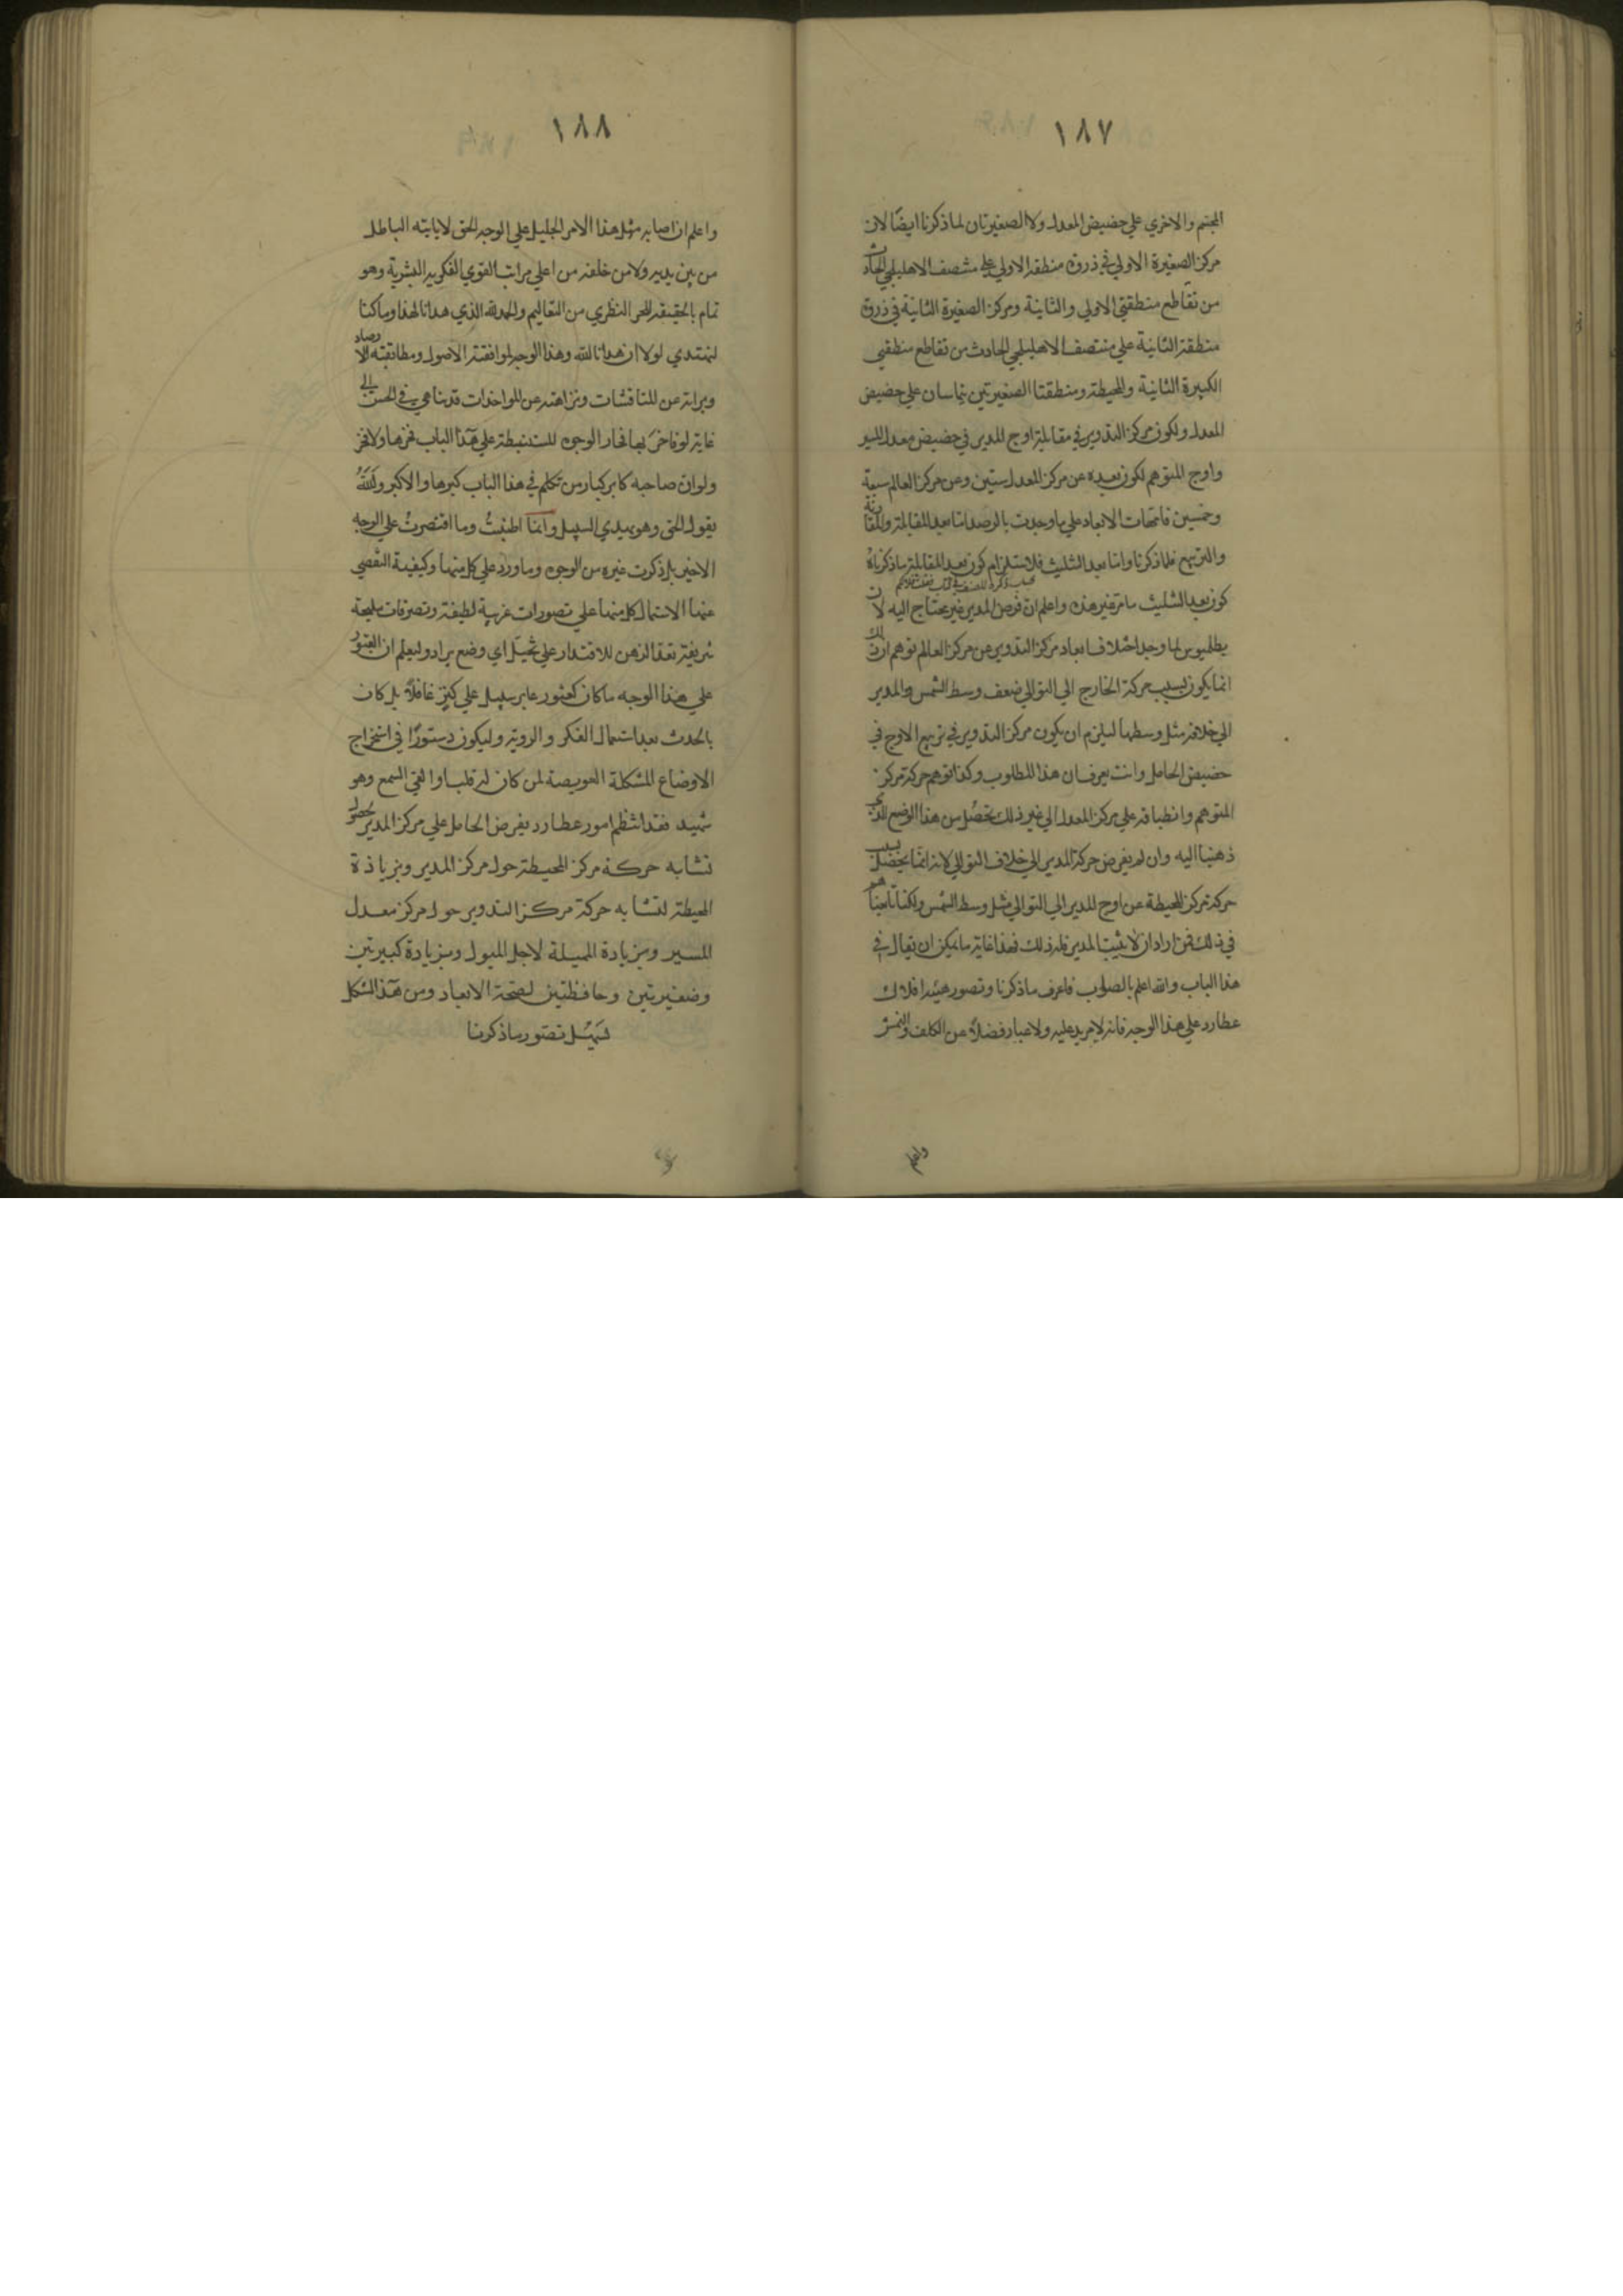 ١٨٧
المجسم والاخري علي حضيض المعدل ولا الصغيرتان لما ذكرنا ايضًا لان
مركز الصغيرة الاولي في ذروة منطقة الاولي علي منتصف الاهليلجي الحادث
من تقاطع منطقتي الاولي والثانية ومركز الصغيرة الثانية في ذروة
منطقة الثانية علي منتصف الاهليلجي الحادث من تقاطع منطقتي
الكبيرة الثانية والمحيطة ومنطقتا الصغيرتين يتماسان علي حضيض
المعدل ولكون مركز التدوير في مقابلة اوج المدير في حضيض معدل المسير
واوج المتوهم لكون بعده عن مركز المعدل ستين وعن مركز العالم سبعة
وخمسين فاتجهات الابعاد علي ما وجدت بالرصد اما بعد المقابلة والمقارنة
والتربيع فلما ذكرنا واما بعد التثليث فلاستلزام كون بعد المقابلة ما ذكرناه
كون بعد التثليث ما مر غير هذه واعلم ان فرض المدير غير محتاج اليه لان
بطلميوس لما وجد اختلاف ابعاد مركز التدوير عن مركز العالم توهم ان ذلك
انما يكون بسبب حركة الخارج الي التوالي ضعف وسط الشمس والمدير
الي خلافه مثل وسطها ليلزم ان يكون مركز التدوير في تربيع الاوج في
حضيض الحامل وانت تعرف ان هذا المطلوب وكذا توهم حركة مركز
المتوهم وانطباقه علي مركز المعدل الي غير ذلك تحصل من هذا الوضع الذي
ذهبنا اليه وان لم يفرض حركة المدير الي خلاف التوالي لانه انما يحصل بسبب
حركة مركز المحيطة عن اوج المدير الي التوالي مثل وسط الشمس ولكنا تابعناهم
في ذلك فمن اراد ان لا يثبت المدير فله ذلك فهذا غاية ما يمكن ان يقال في
هذا الباب والله اعلم بالصواب فاعرف ما ذكرنا وتصور هيئة افلاك
عطارد علي هذا الوجه فانه لا مزيد عليه ولا غبار فضلاً عن الكلف والنمش
واعلم
١٨٨
واعلم ان اصابة مثل هذا الامر الجليل علي الوجه الحق لا ياتيه الباطل
من بين يديه ولا من خلفه من اعلي مراتب القوي الفكرية البشرية وهو
تمام بالحقيقة للجزء النظري من التعاليم والحمد لله الذي هدانا لهذا وما كنا
لنهتدي لولا ان هدانا الله وهذا الوجه لموافقته الاصول ومطابقته الارصاد
وبراته عن المناقشات ونزاهته عن المواخذات قد تناهي في الحسن الي
غاية لو فاخر بها فخار الوجوه المستنبطة علي هذا الباب فخرها ولا فخر
ولو ان صاحبه كابر كبار من تكلم في هذا الباب كبرها والاكبر ولله
يقول الحق وهو يهدي السبيل وانما اطنبتُ وما اقتصرتُ علي الوجه
الاخير بل ذكرت غيره من الوجوه وما ورد علي كل منها وكيفية التقصي
عنها لاشتمال كل منها علي تصورات غريبة لطيفة وتصرفات مليحة
شريفة تعد الذهن للاقتدار علي تخيل اي وضع يراد وليعلم ان العثور
علي هذا الوجه ما كان كعثور عابر سبيل علي كنز غافلاً بل كان
بالحدث بعد استعمال الفكر والروية وليكون دستورًا في استخراج
الاوضاع المشكلة العويصة لمن كان له قلب او القي السمع وهو
شهيد فقد انتظم امور عطارد بفرض الحامل علي مركز المدير لحصول
تشابه حركة مركز المحيطة حول مركز المدير وبزيادة
المحيطة لتشابه حركة مركز التدوير حول مركز معدل
المسير وبزيادة المميلة لاجل الميول وبزيادة كبيرتين
وصغيرتين وحافظتين لصحة الابعاد ومن هذا الشكل
تسهل تصور ما ذكرنا